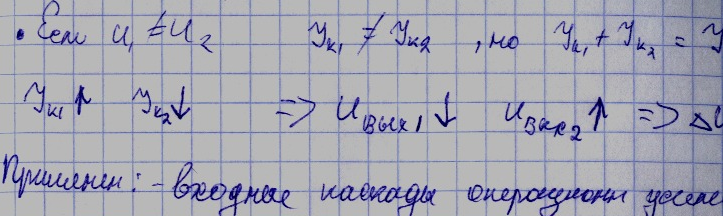 • Если U₁ ≠ U₂ Jк₁ ≠ Jк₂ , но Jк₁ + Jк₂ = J
Jк₁ ↑ Jк₂ ↓ => Uвых1 ↓ Uвых2 ↑ => ΔU
Применен: - входные каскады операционн усиле